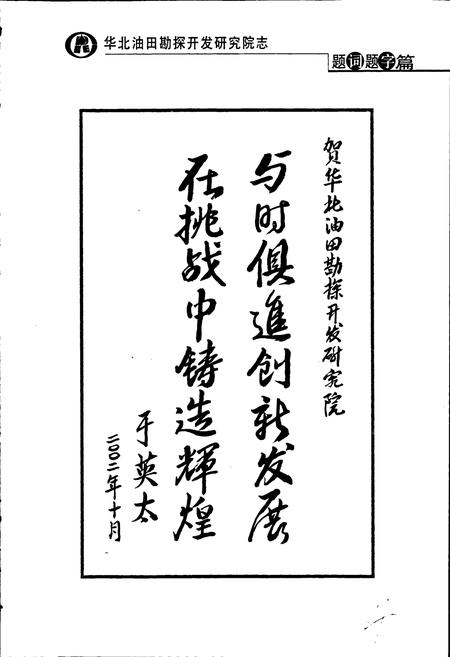 华北油田勘探开发研究院志
题词题字篇
贺华北油田勘探开发研究院
与时俱進创新发展
在挑战中铸造輝煌
于英太
二〇〇二年十月